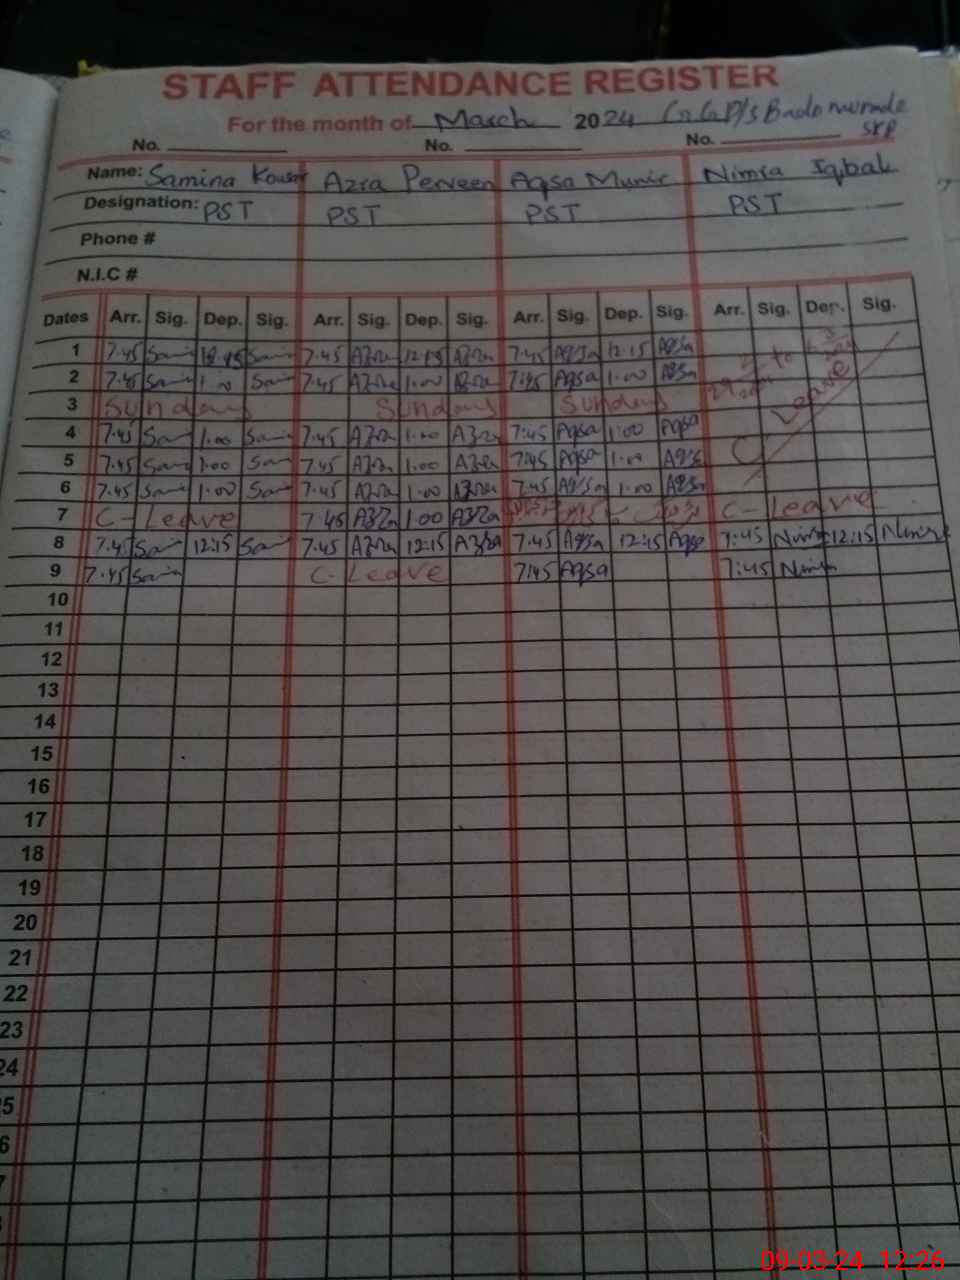 STAFF ATTENDANCE REGISTER
For the month of March 2024 G.G.P/S Bado murade
SKP
No. No. No.
Name: Samina Kousar Azra Perveen Aqsa Munir Nimra Iqbal
Designation: PST PST PST PST
Phone #
N.I.C #
Dates Arr. Sig. Dep. Sig. Arr. Sig. Dep. Sig. Arr. Sig. Dep. Sig. Arr. Sig. Dep. Sig.
1 7.45 Sami 12.15 Sami 7.45 Azra 12.15 Azra 7.45 Aqsa 12.15 Aqsa
2 7.45 Sami 1.00 Sami 7.45 Azra 1.00 Azra 7.45 Aqsa 1.00 Aqsa 29 to 6
3 Sunday Sunday Sunday C Leave
4 7.45 Sami 1.00 Sami 7.45 Azra 1.00 Azra 7:45 Aqsa 1:00 Aqsa
5 7.45 Sami 1.00 Sami 7.45 Azra 1.00 Azra 7:45 Aqsa 1.00 Aqsa
6 7.45 Sami 1.00 Sami 7.45 Azra 1.00 Azra 7.45 Aqsa 1.00 Aqsa
7 C-Leave 7.45 Azra 1.00 Azra C-Leave
8 7.45 Sami 12:15 Sami 7.45 Azra 12:15 Azra 7.45 Aqsa 12:15 Aqsa 7:45 Nimra 12:15 Nimra
9 7.45 Sami C-Leave 7:45 Aqsa 7:45 Nimra
10
11
12
13
14
15
16
17
18
19
20
21
22
23
24
5
6
09-03-24 12:26